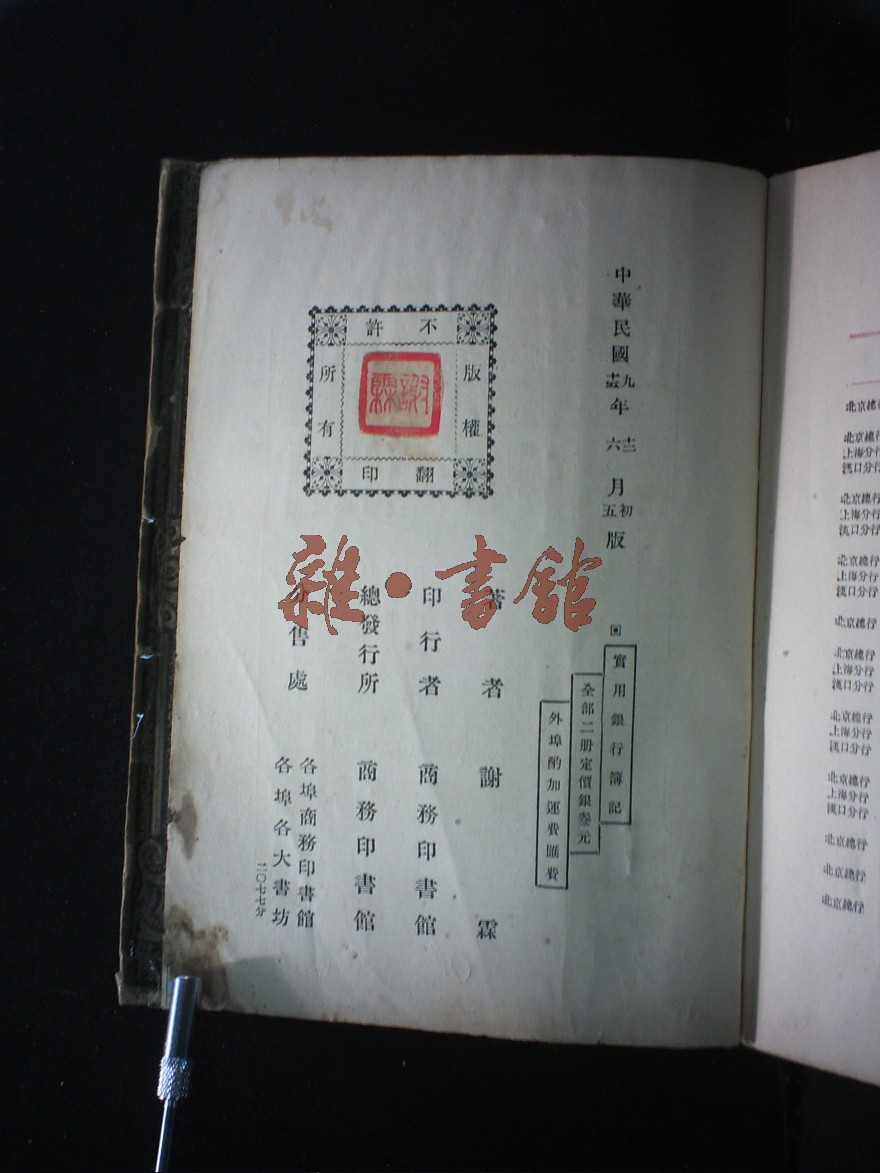 中華民國九十五年十二六月初五版
實用銀行簿記
全部二册定價銀叁元
外埠酌加運費匯費
版權所有
不許翻印
謝霖
著者 謝霖
印行者 商務印書館
總發行所 商務印書館
售處 各埠商務印書館
各埠各大書坊
二〇七七分
雜·書館
北京總
北京總行
上海分行
漢口分行
北京總行
上海分行
漢口分行
北京總行
上海分行
漢口分行
北京總行
北京總行
上海分行
漢口分行
北京總行
上海分行
漢口分行
北京總行
上海分行
漢口分行
北京總行
北京總行
北京總行